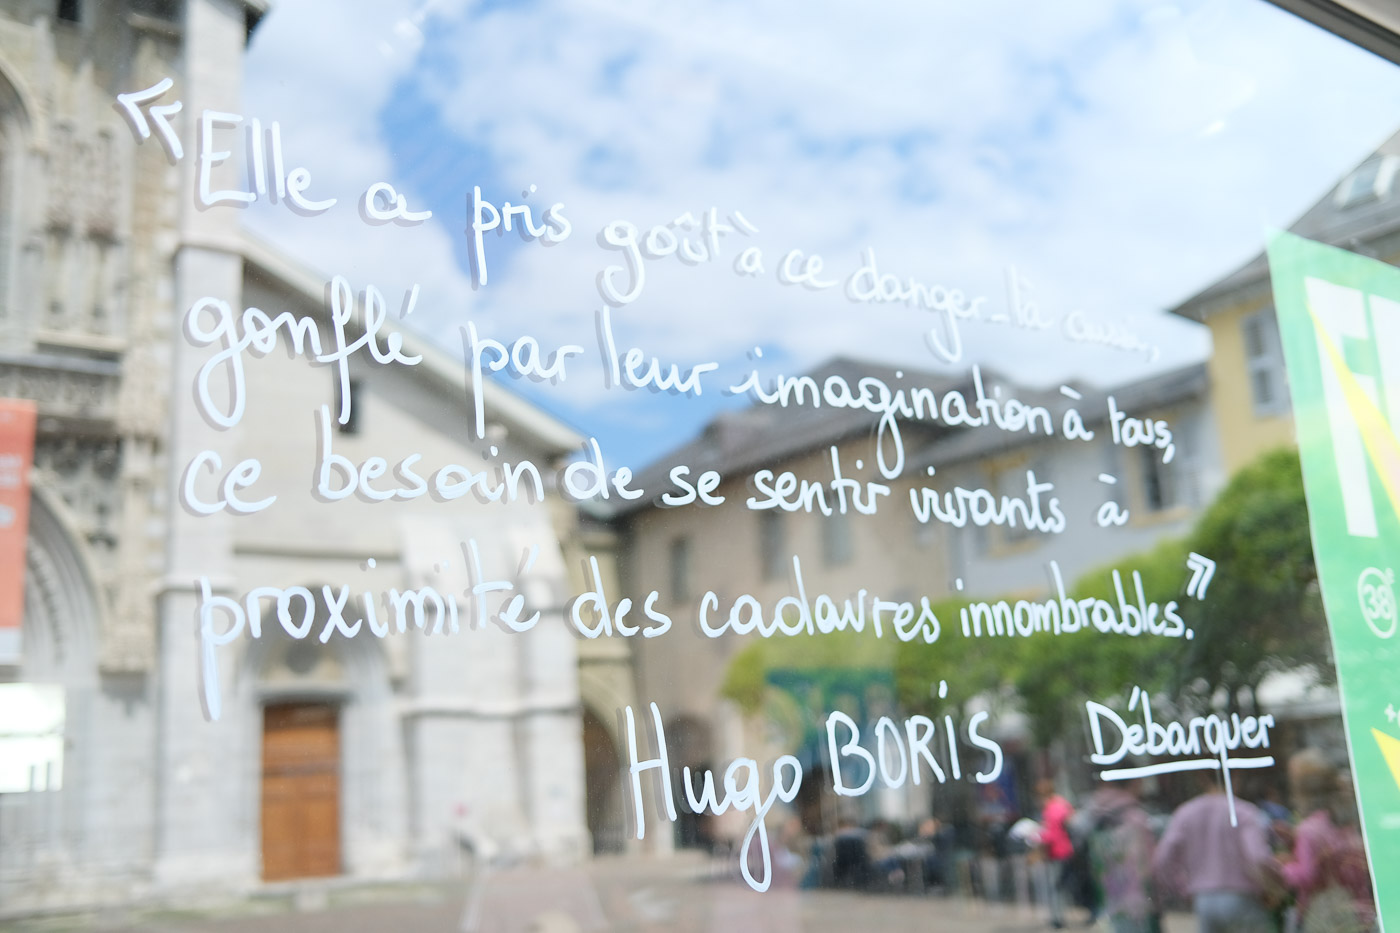 « Elle a pris goût à ce danger-là aussi,
gonflé par leur imagination à tous,
ce besoin de se sentir vivants à
proximité des cadavres innombrables. »
Hugo BORIS Débarquer
38